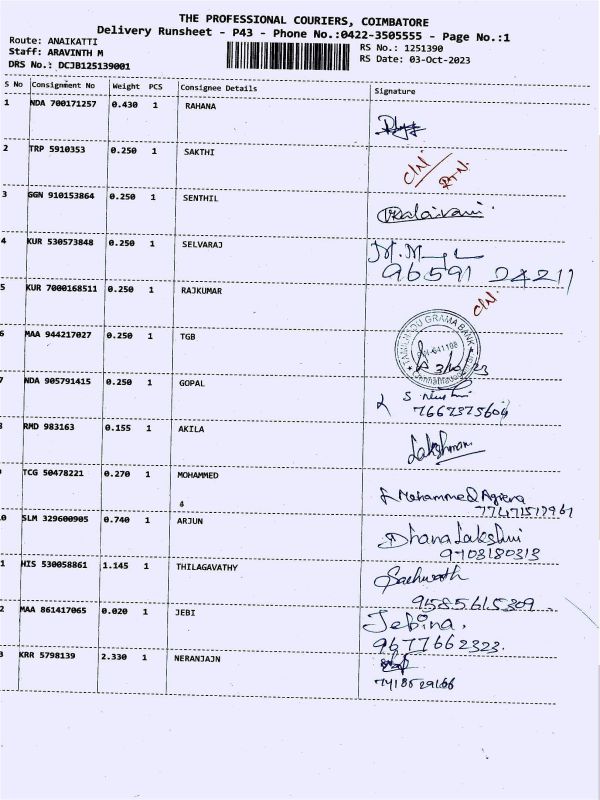 THE PROFESSIONAL COURIERS, COIMBATORE
Delivery Runsheet - P43 - Phone No.:0422-3505555 - Page No.:1
Route: ANAIKATTI
Staff: ARAVINTH M
DRS No.: DCJB125139001
RS No.: 1251390
RS Date: 03-Oct-2023
S No Consignment No Weight PCS Consignee Details Signature
1 NDA 700171257 0.430 1 RAHANA
2 TRP 5910353 0.250 1 SAKTHI C/N/ RTN.
3 GGN 910153864 0.250 1 SENTHIL Kalaivani
4 KUR 530573848 0.250 1 SELVARAJ
96591 04211
5 KUR 7000168511 0.250 1 RAJKUMAR C/N.
6 MAA 944217027 0.250 1 TGB TAMIL NADU GRAMA BANK 641108
7 NDA 905791415 0.250 1 GOPAL
7667375609
8 RMD 983163 0.155 1 AKILA Lakshmani
9 TCG 50478221 0.270 1 MOHAMMED Mohammed
0 SLM 329600905 0.740 1 ARJUN Dhana Lakshmi
9703180313
1 HIS 530058861 1.145 1 THILAGAVATHY
9585615309
2 MAA 861417065 0.020 1 JEBI Jebina.
9677662323.
3 KRR 5798139 2.330 1 NERANJAJN